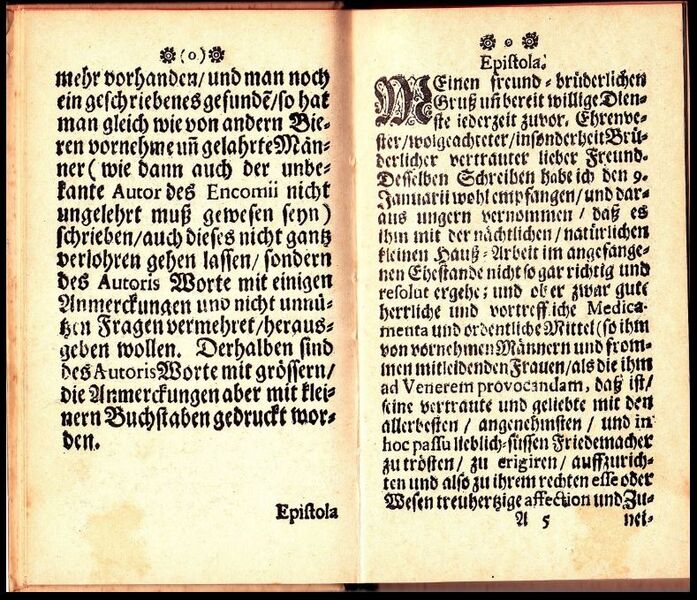 (o)
mehr vorhanden/und man noch
ein geschriebenes gefundē/so hat
man gleich wie von andern Bie-
ren vornehme uñ gelahrte Män-
ner (wie dann auch der unbe-
kante Autor des Encomii nicht
ungelehrt muß gewesen seyn)
schrieben/auch dieses nicht gantz
verlohren gehen lassen/ sondern
des Autoris Worte mit einigen
Anmerckungen und nicht unnü-
tzen Fragen vermehret/heraus-
geben wollen. Derhalben sind
des Autoris Worte mit grössern/
die Anmerckungen aber mit klei-
nern Buchstaben gedruckt wor-
den.
Epistola
o
Epistola.
MEinen freund-brüderlichen
Gruß uñ bereit willige Dien-
ste iederzeit zuvor. Ehrenve-
ster/wolgeachteter/insonderheit Brü-
derlicher vertrauter lieber Freund.
Desselben Schreiben habe ich den 9.
Januarii wohl empfangen/und dar-
aus ungern vernommen/ daß es
ihm mit der nächtlichen/natürlichen
kleinen Hauß-Arbeit im angefange-
nen Ehestande nicht so gar richtig und
resolut ergehe; und ob er zwar gute
herrliche und vortreffliche Medica-
menta und ordentliche Mittel (so ihm
von vornehmen Männern und from-
men mitleidenden Frauen/als die ihm
ad Venerem provocandam, daß ist/
seine vertraute und geliebte mit den
allerbesten/ angenehmsten/ und in
hoc passu lieblich-süssen Friedemacher
zu trösten/ zu erigiren/ auffzurich-
ten und also zu ihrem rechten esse oder
Wesen treuhertzige affection und Zu-
A 5 nei-